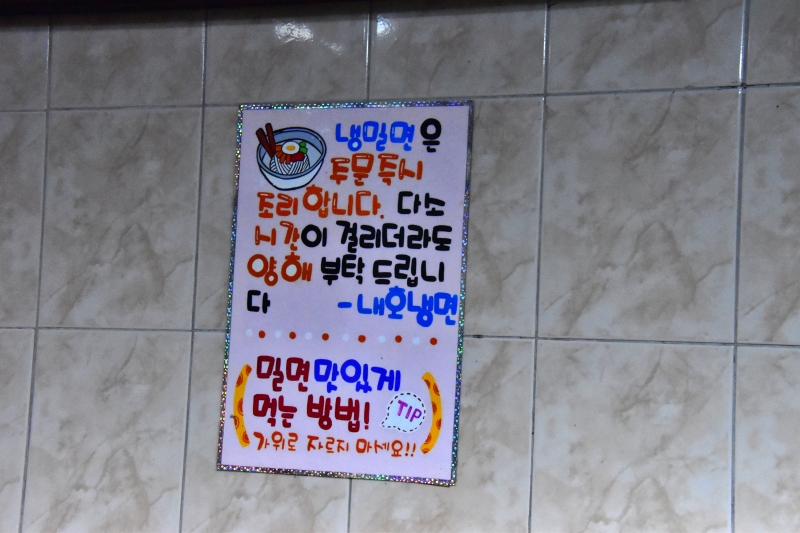 냉밀면은
주문즉시
조리합니다. 다소
시간이 걸리더라도
양해 부탁 드립니
다 -내호냉면
밀면 맛있게
먹는 방법!
TIP
가위로 자르지 마세요!!